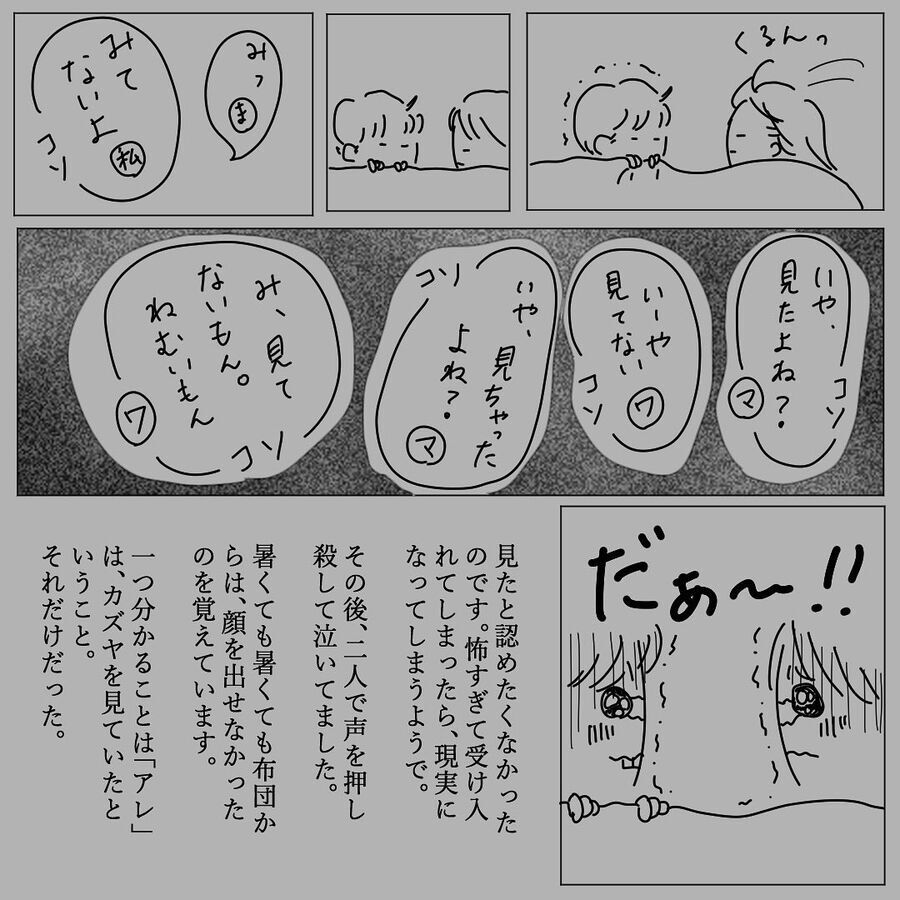 くるんっ
みっ
ま
みて
ないよ
私
コソ
いや、
見たよね?
マ
コソ
いーや
見てない
ワ
コソ
いや、見ちゃった
よね?
マ
コソ
み、見て
ないもん。
ねむいもん
ワ
コソ
だぁ〜!!
見たと認めたくなかった
のです。怖すぎて受け入
れてしまったら、現実に
なってしまうようで。
その後、二人で声を押し
殺して泣いてました。
暑くても暑くても布団か
らは、顔を出せなかった
のを覚えています。
一つ分かることは「アレ」
は、カズヤを見ていたと
いうこと。
それだけだった。